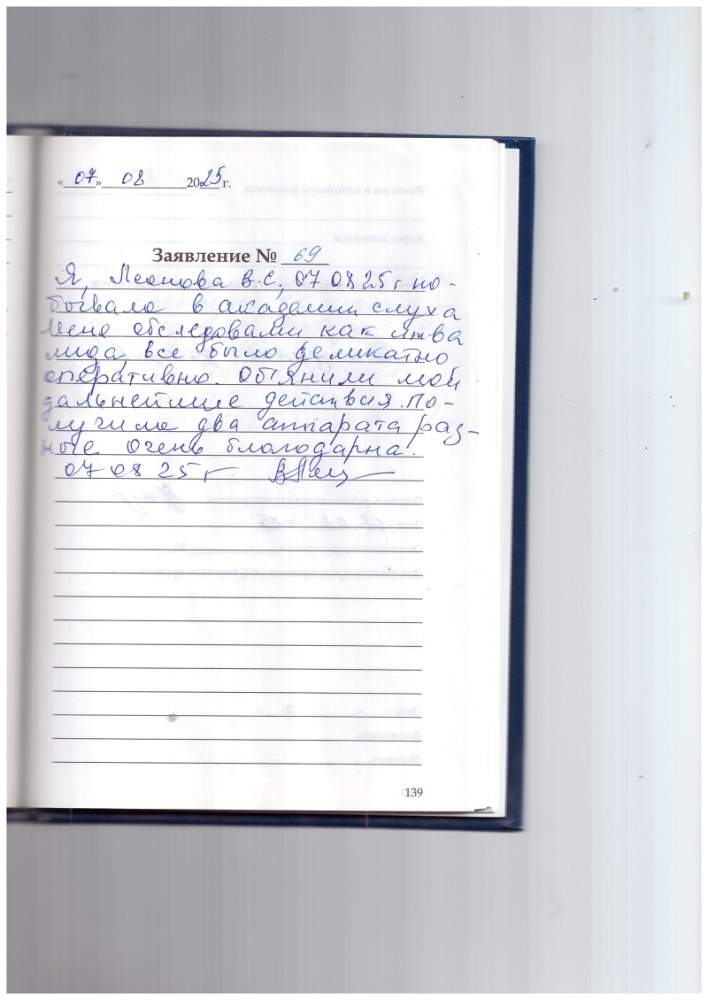 «07» 08 2025 г.
Заявление № 69
Я, Леонова В.С, 07 08 25 г по-
бывала в академии слуха
Меня обследовали как инва
лида, все было деликатно
оперативно. Обянили мои
дальнейшие действия. По-
лучила два аппарата раз-
ные очень благодарна.
07 08 25 г
139